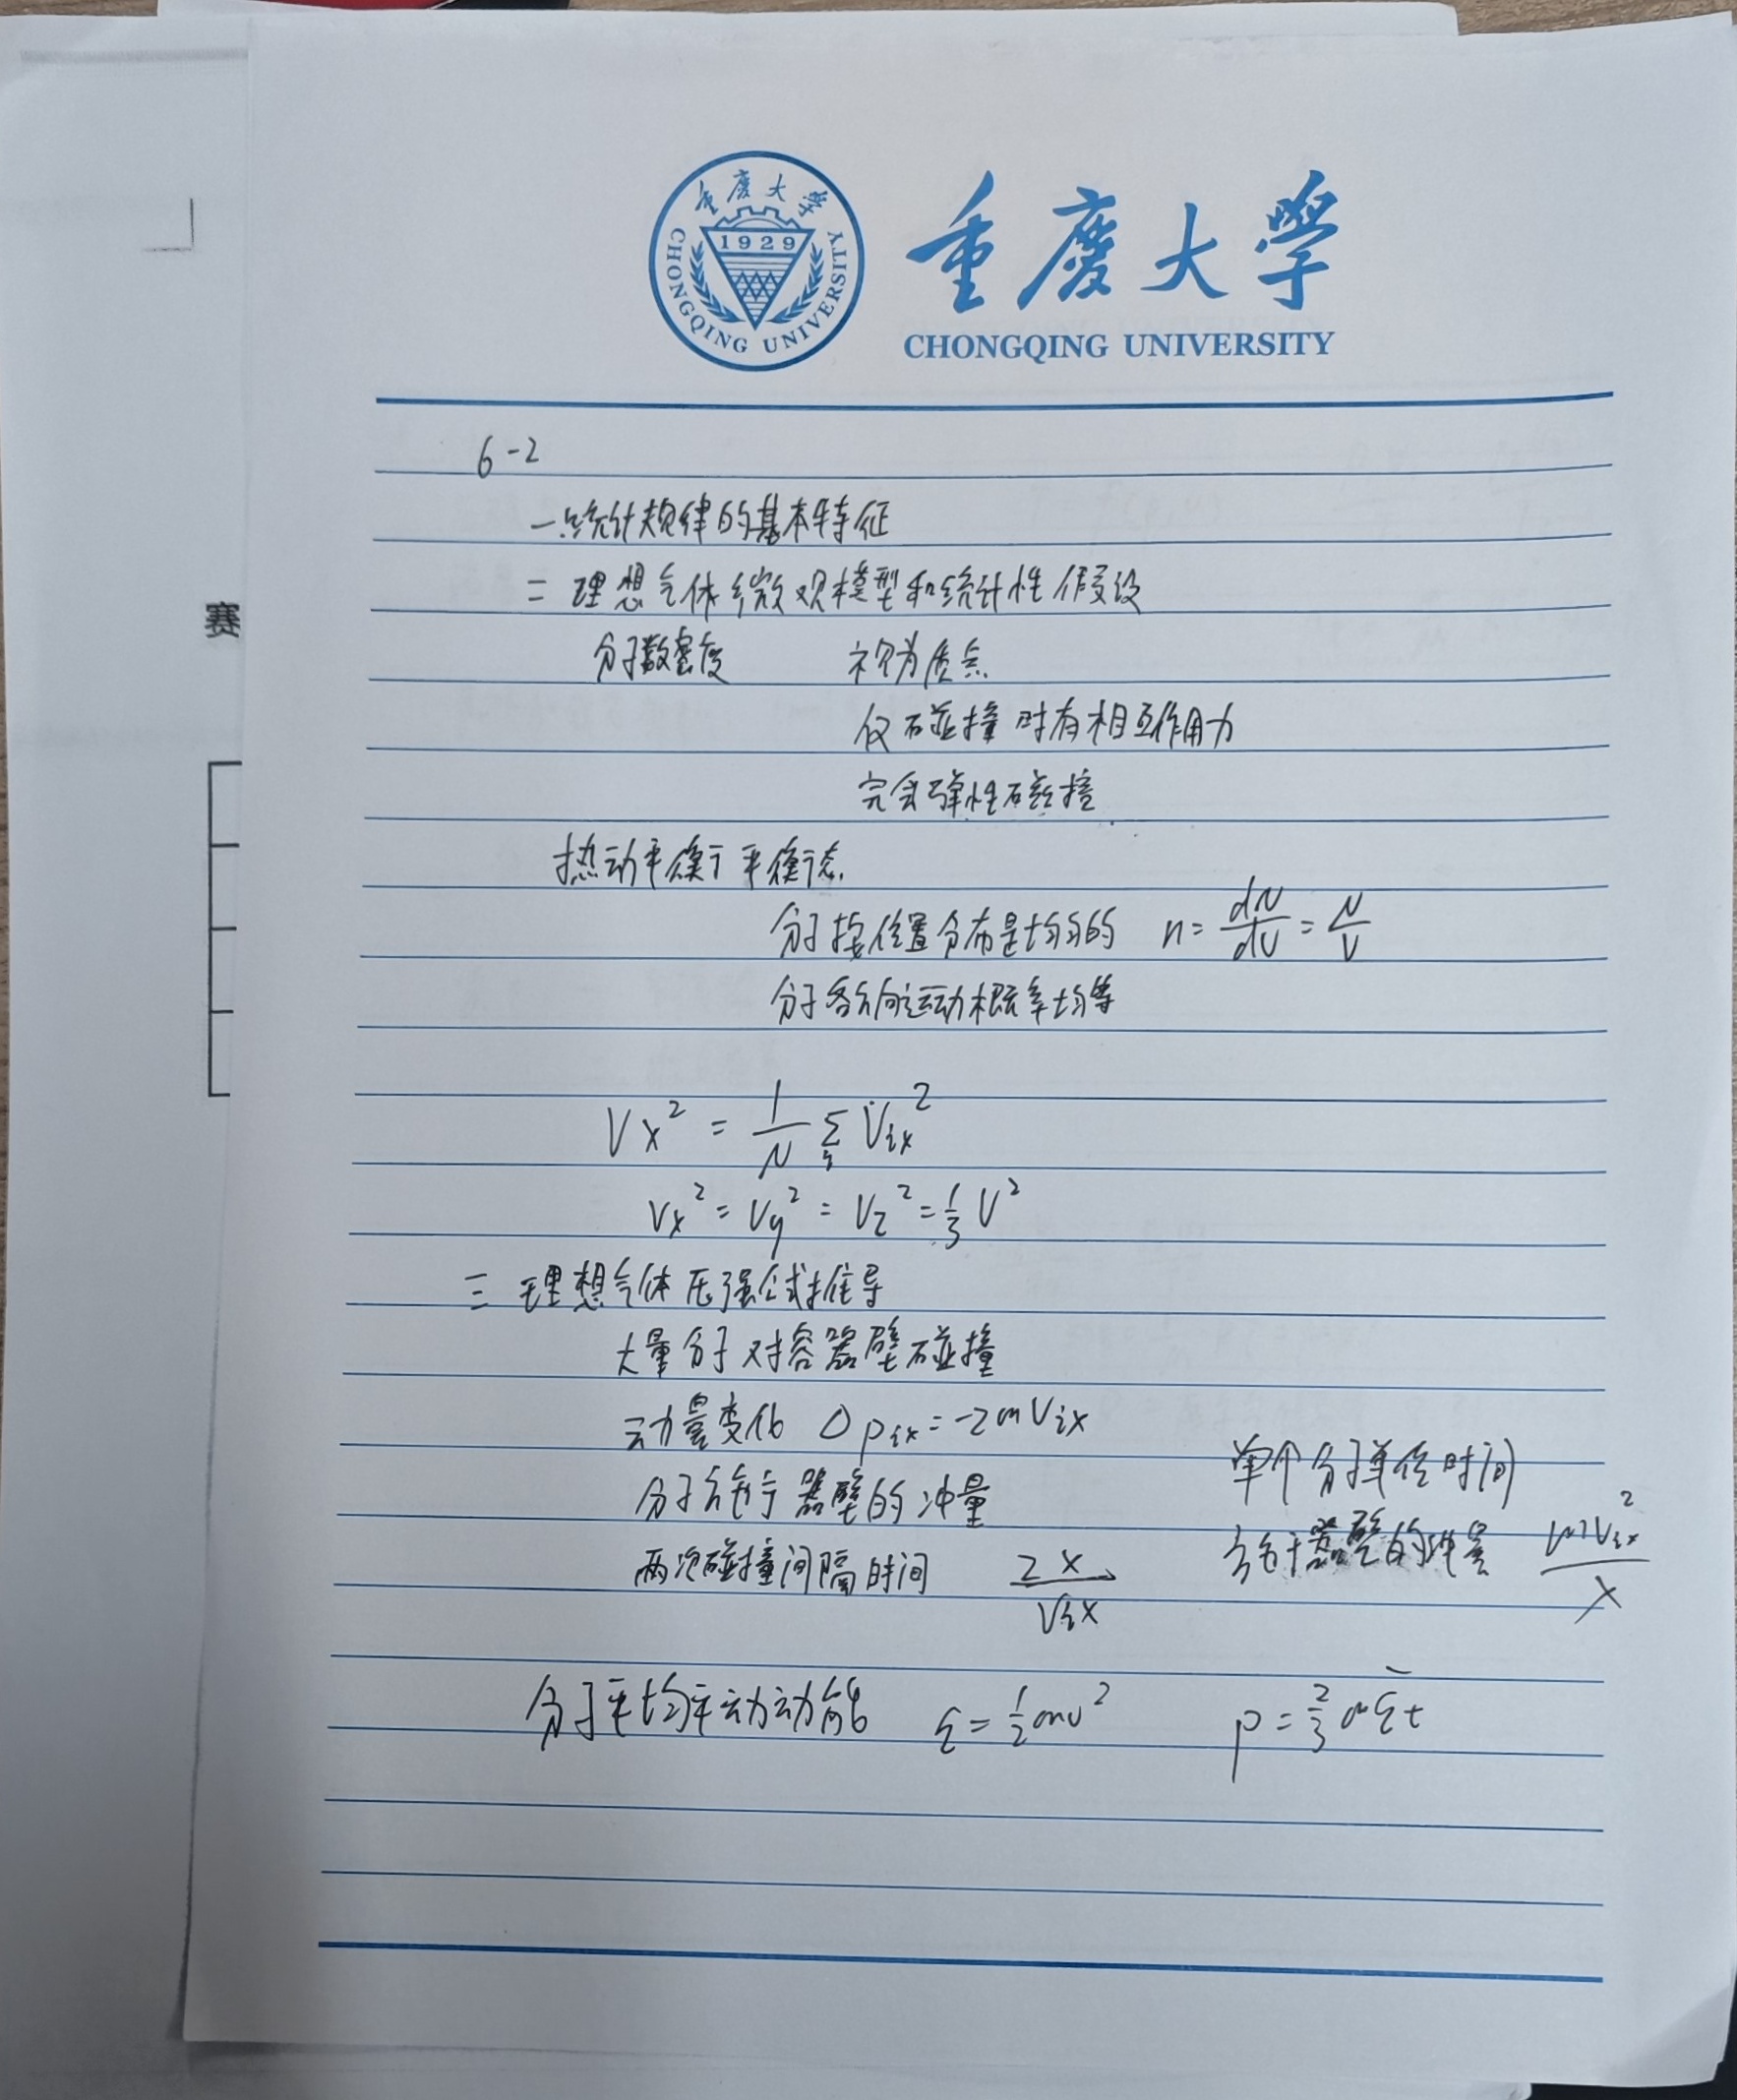 重慶大學
CHONGQING UNIVERSITY
1929
重慶大學
CHONGQING UNIVERSITY
赛
6-2
一.统计规律的基本特征
二 理想气体微观模型和统计性假设
分子数密度 视为质点
仅碰撞时有相互作用力
完全弹性碰撞
热动平衡 平衡态
分子按位置分布是均匀的 n = dN/dV = N/V
分子各方向运动概率均等
Vx² = 1/N Σi Vix²
Vx² = Vy² = Vz² = 1/3 V²
三 理想气体压强公式推导
大量分子对容器壁碰撞
动量变化 Δpix = -2mVix
分子施于器壁的冲量
两次碰撞间隔时间 2x/Vix
单个分子单位时间
施于器壁的冲量 mVix²/x
分子平均平动动能 ε = 1/2 mv² p = 2/3 n ε̄t